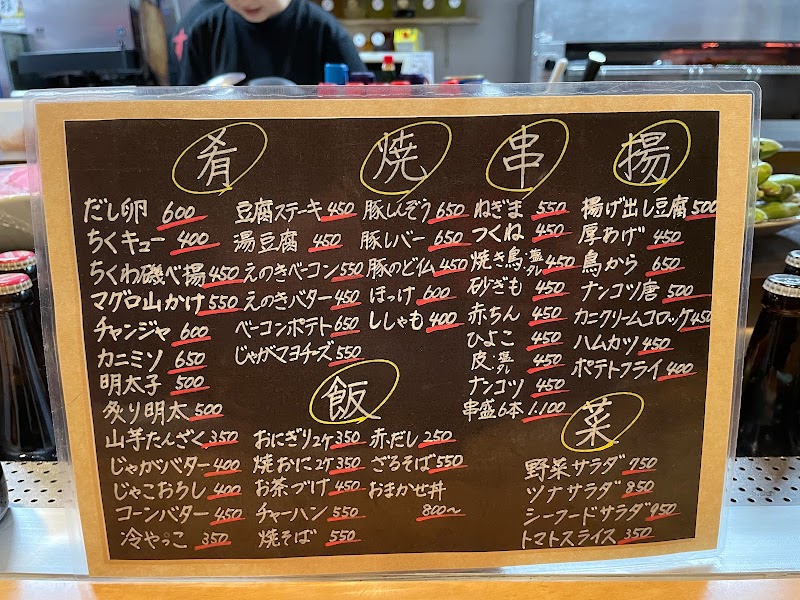 肴
だし卵 600
ちくキュー 400
ちくわ磯べ揚 450
マグロ山かけ 550
チャンジャ 600
カニミソ 650
明太子 500
炙り明太 500
山芋たんざく 350
じゃがバター 400
じゃこおろし 400
コーンバター 450
冷やっこ 350
豆腐ステーキ 450
湯豆腐 450
えのきベーコン 550
えのきバター 450
ベーコンポテト 650
じゃがマヨチーズ 550
焼
豚しんぞう 650
豚レバー 650
豚のど仏 450
ほっけ 600
ししゃも 400
串
ねぎま 550
つくね 450
焼き鳥・塩タレ 450
砂ぎも 450
赤ちん 450
ひよこ 450
皮・塩タレ 450
ナンコツ 450
串盛6本 1.100
揚
揚げ出し豆腐 500
厚あげ 450
鳥から 650
ナンコツ唐 500
カニクリームコロッケ 450
ハムカツ 450
ポテトフライ 400
飯
おにぎり2ケ 350
焼おに2ケ 350
お茶づけ 450
チャーハン 550
焼そば 550
赤だし 250
ざるそば 550
おまかせ丼
800〜
菜
野菜サラダ 750
ツナサラダ 850
シーフードサラダ 950
トマトスライス 350